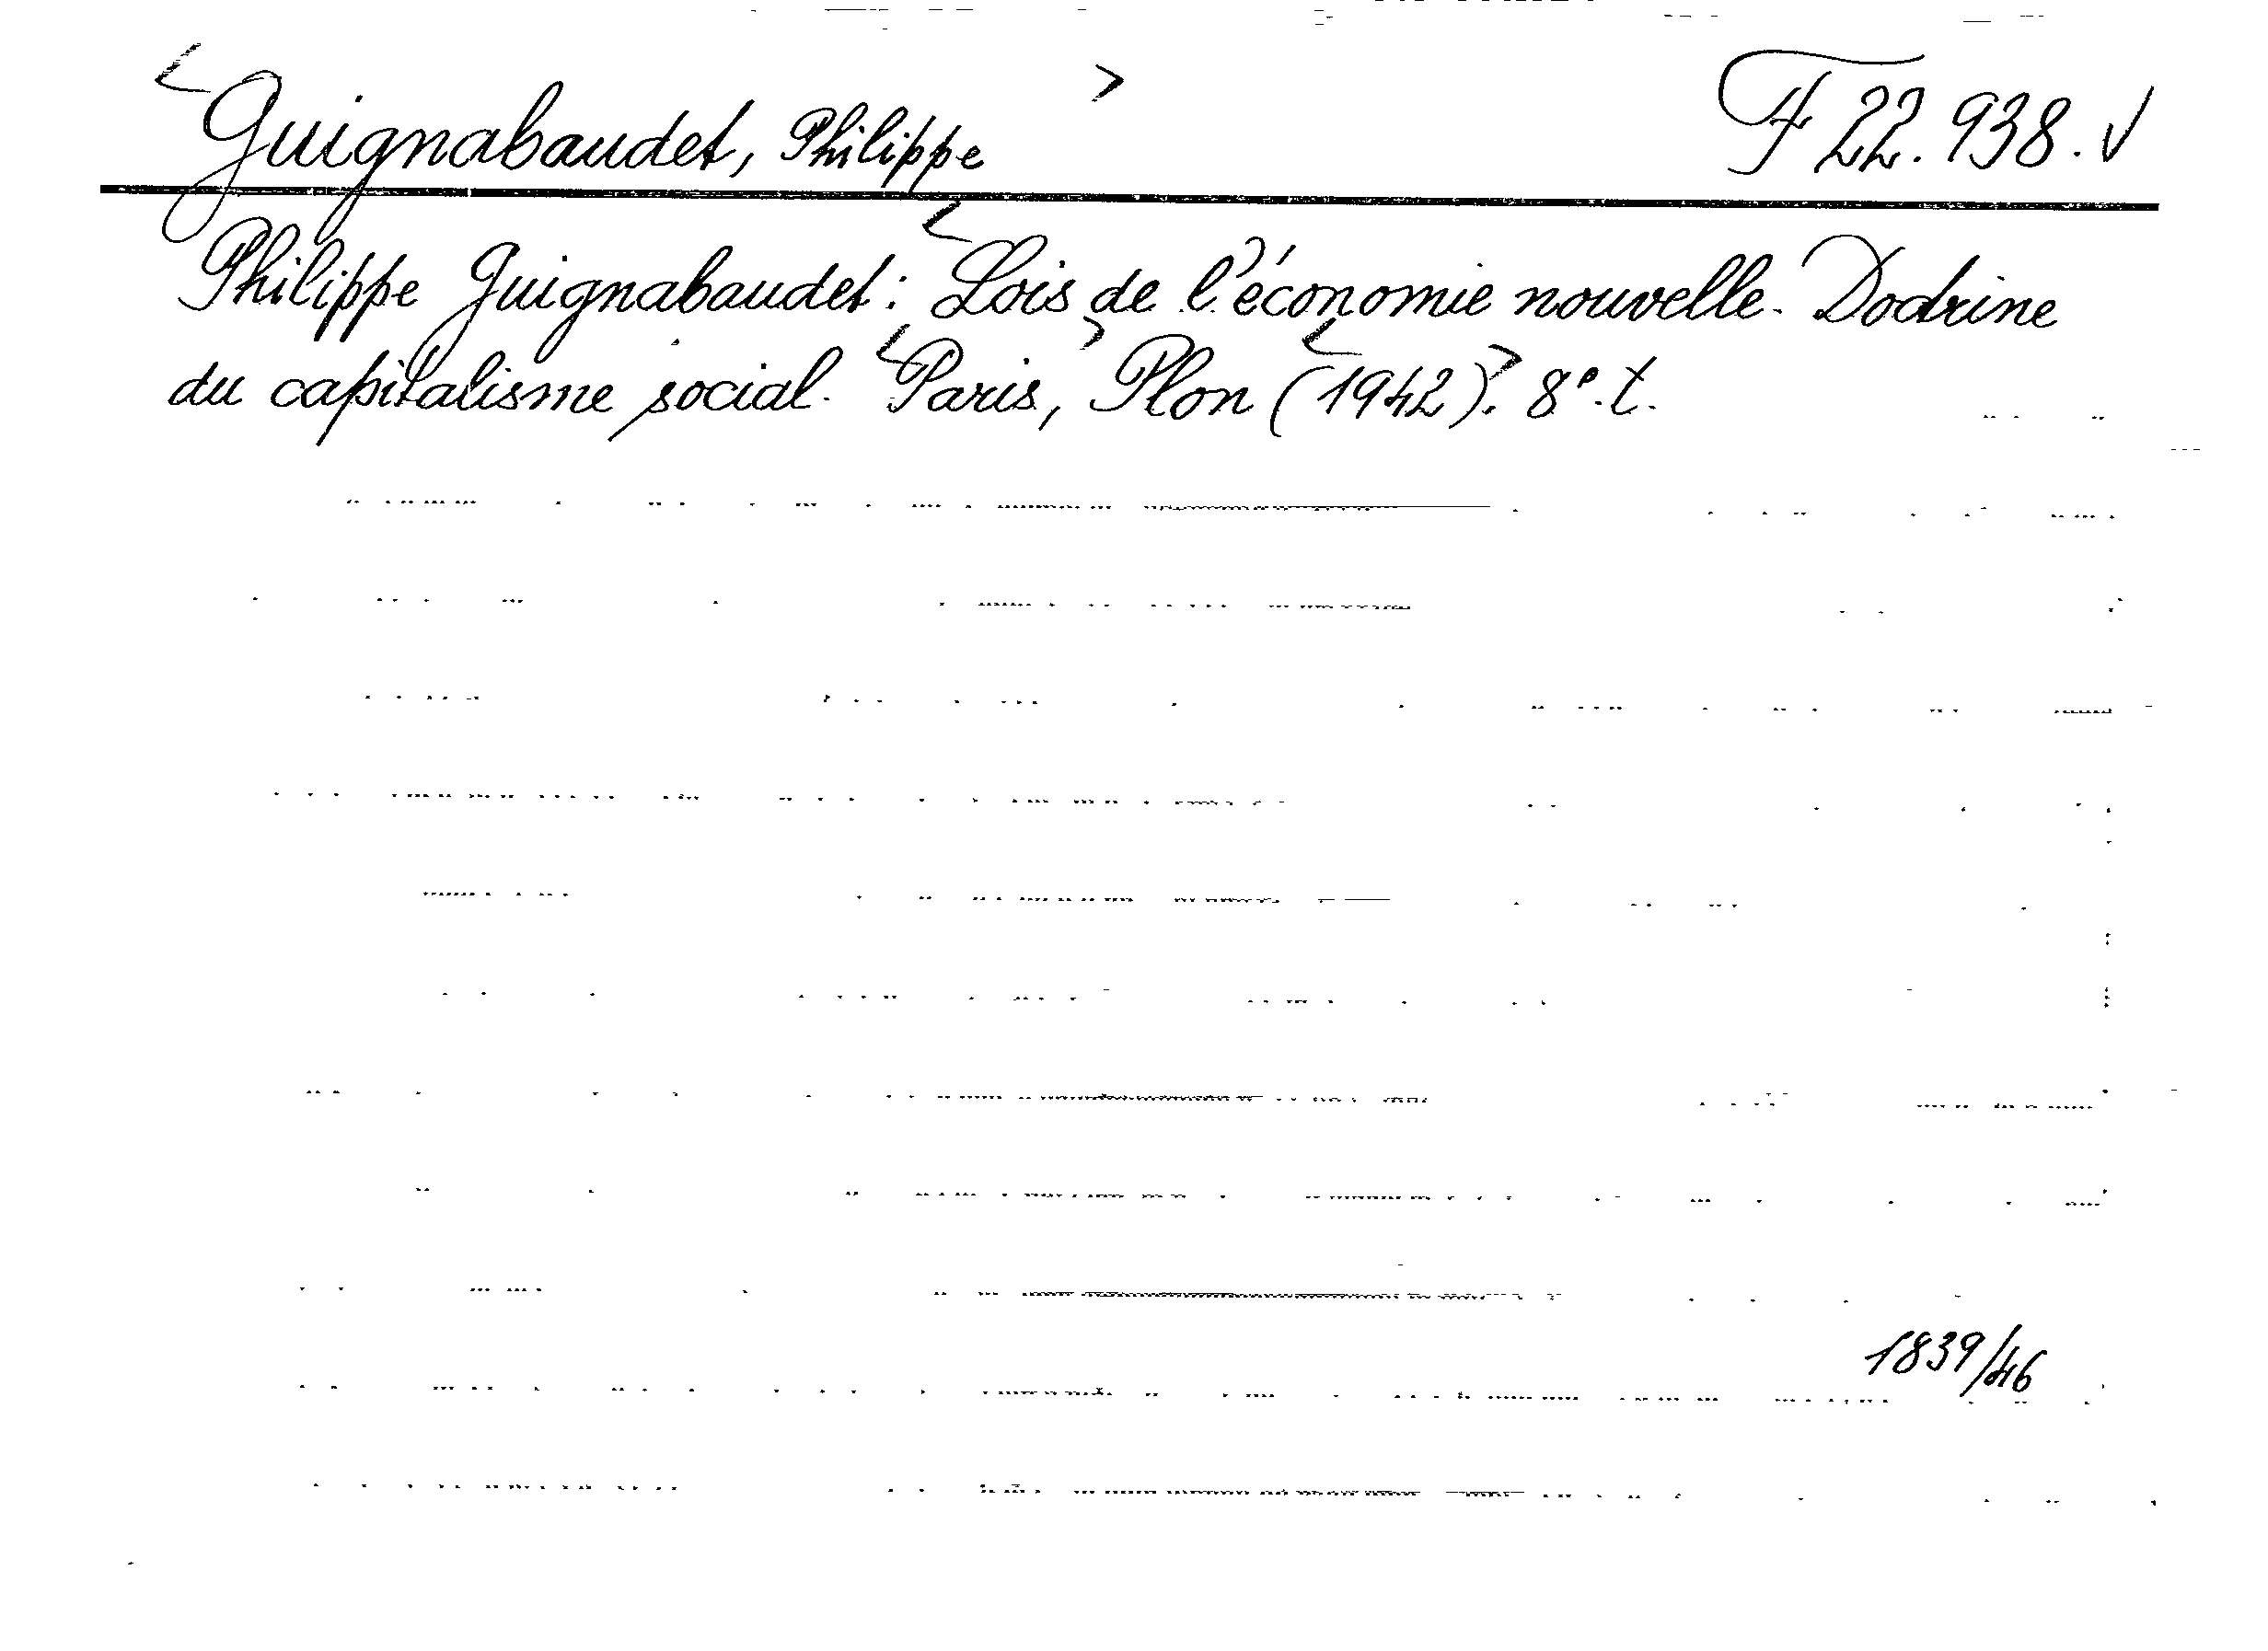 <Guignabaudet, Philippe> F 22.938. √
Philippe Guignabaudet: <Lois> de l'économie nouvelle. Doctrine
du capitalisme social. <Paris, Plon (<1942)>. 8°. t.
1839/46